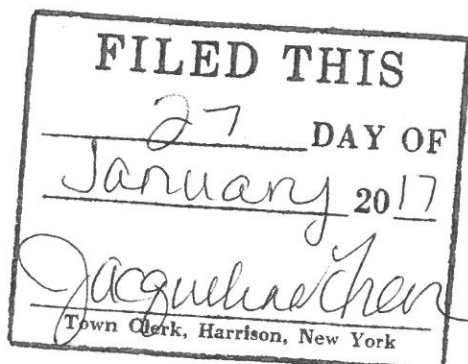 FILED THIS
27 DAY OF
January 2017
Jacqueline
Town Clerk, Harrison, New York